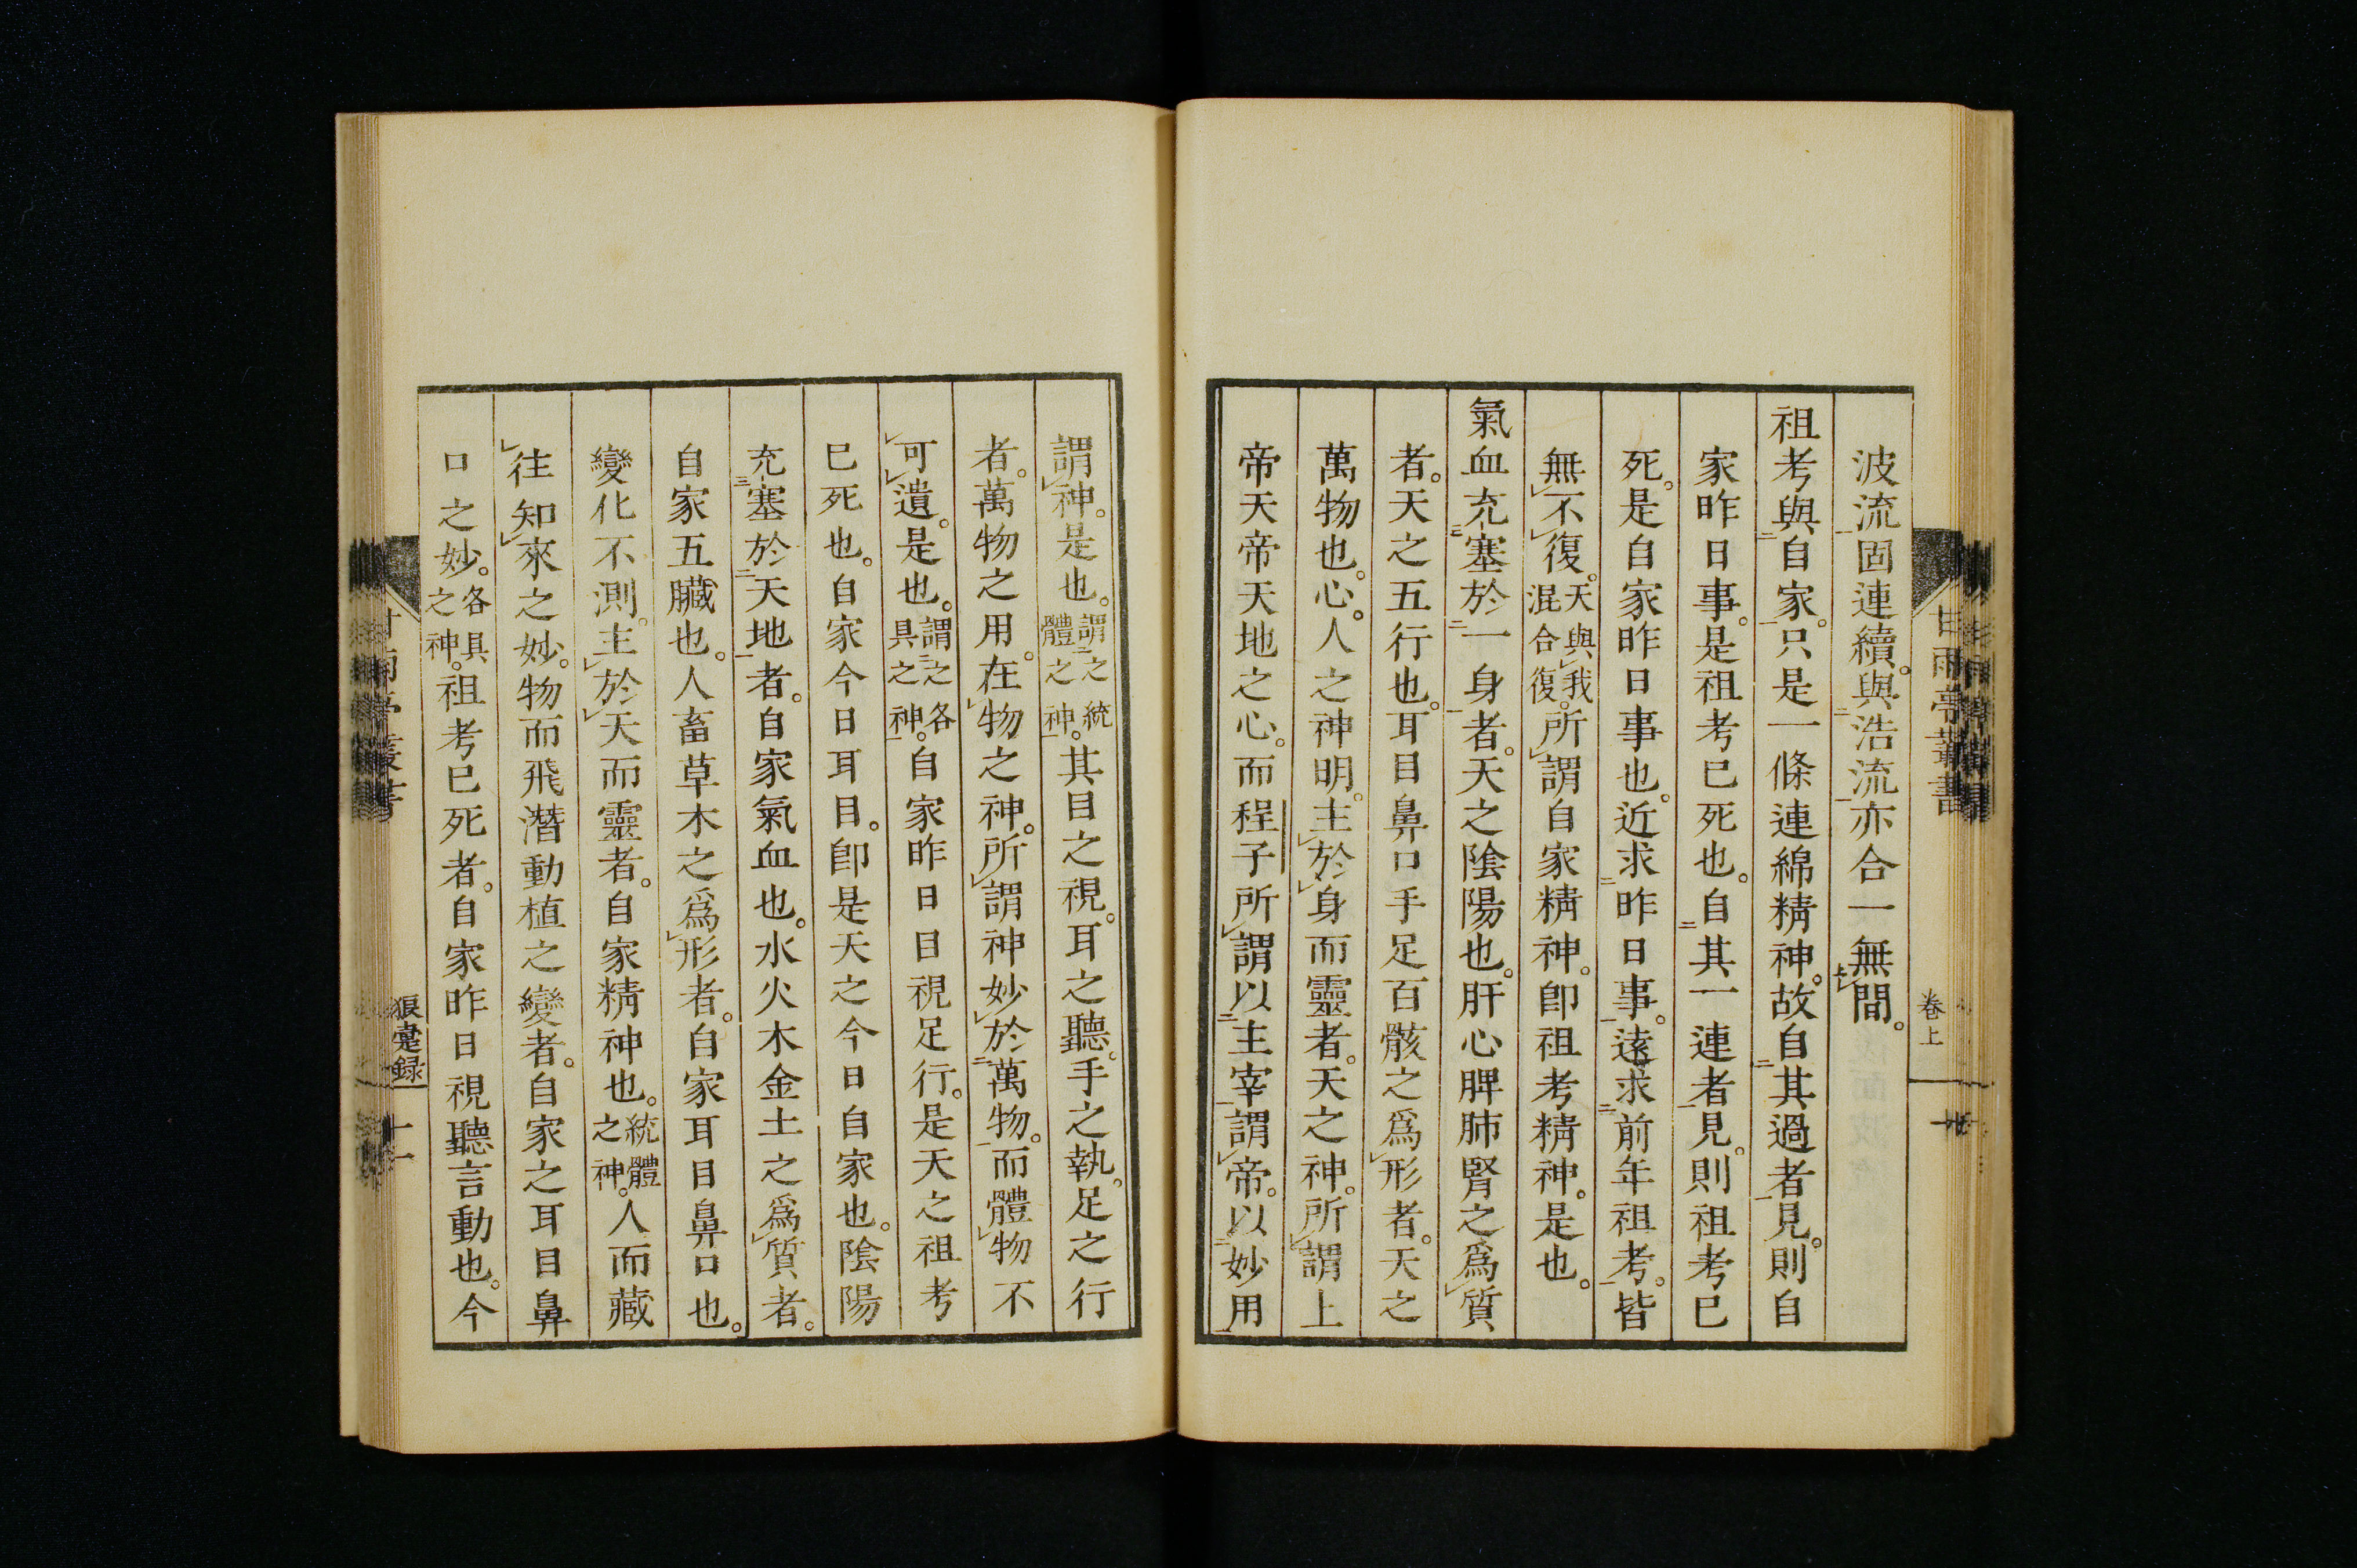 波流固連續。與浩流亦合一無間。
祖考與自家。只是一條連綿精神。故自其過者見。則自
家昨日事。是祖考已死也。自其一連者見。則祖考已
死。是自家昨日事也。近求昨日事。遠求前年祖考。皆
無不復。天與我混合復。所謂自家精神。卽祖考精神。是也。
氣血充塞於一身者。天之陰陽也。肝心脾肺腎之爲質
者。天之五行也。耳目鼻口手足百骸之爲形者。天之
萬物也。心。人之神明。主於身而靈者。天之神。所謂上
帝天帝天地之心。而程子所謂以主宰謂帝。以妙用
卷上
甘雨亭叢書
謂神。是也。謂之統體之神。其目之視。耳之聽。手之執。足之行
者。萬物之用。在物之神。所謂神妙於萬物。而體物不
可遺。是也。謂之各具之神。自家昨日目視足行。是天之祖考
已死也。自家今日耳目。卽是天之今日自家也。陰陽
充塞於天地者。自家氣血也。水火木金土之爲質者。
自家五臟也。人畜草木之爲形者。自家耳目鼻口也。
變化不測。主於天而靈者。自家精神也。統體之神。人而藏
往知來之妙。物而飛潛動植之變者。自家之耳目鼻
口之妙。各具之神。祖考已死者。自家昨日視聽言動也。今
狼疐録
十一